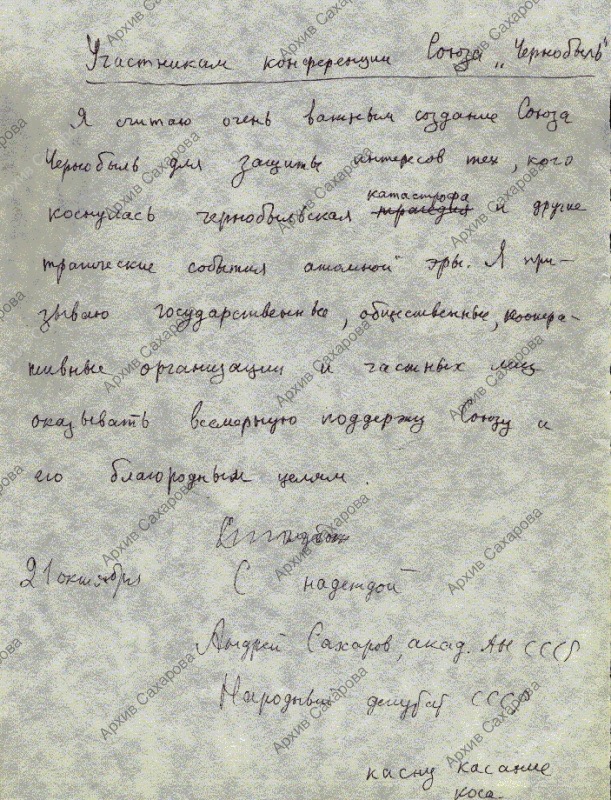 Участникам конференции Союза „Чернобыль"
Я считаю очень важным создание Союза
Чернобыль для защиты интересов тех, кого
коснулась чернобыльская трагедия катастрофа и другие
трагические события атомной эры. Я при-
зываю государственные, общественные, коопера-
тивные организации и частных лиц
оказывать всемерную поддержу Союзу и
его благородным целям.
21 октября С надеждой
Андрей Сахаров, акад. АН СССР
Народный депутат СССР
касну касание
коса
Архив Сахарова